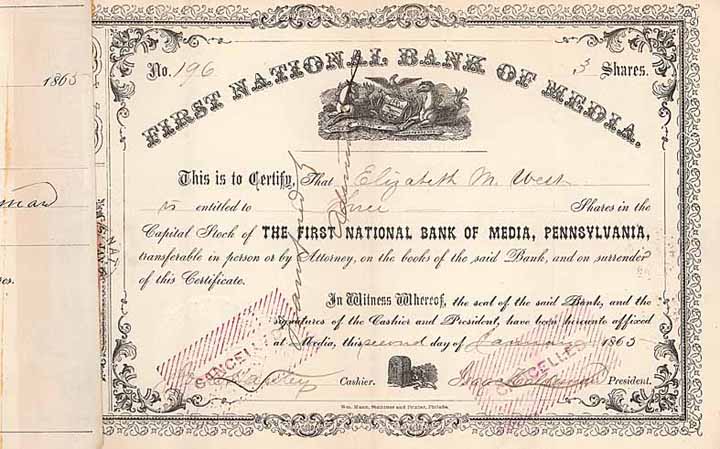 1865
man
res.
No. 196
3 Shares.
FIRST NATIONAL BANK OF MEDIA.
This is to Certify, That Elizabeth M. West
is entitled to Three Shares in the
Capital Stock of THE FIRST NATIONAL BANK OF MEDIA, PENNSYLVANIA,
transferable in person or by Attorney, on the books of the said Bank, and on surrender
of this Certificate.
In Witness Whereof, the seal of the said Bank, and the
signatures of the Cashier and President, have been hereunto affixed
at Media, this second day of January 1865
Cashier.
President.
CANCELLED
CANCELLED
Wm. Mann, Stationer and Printer, Philada.